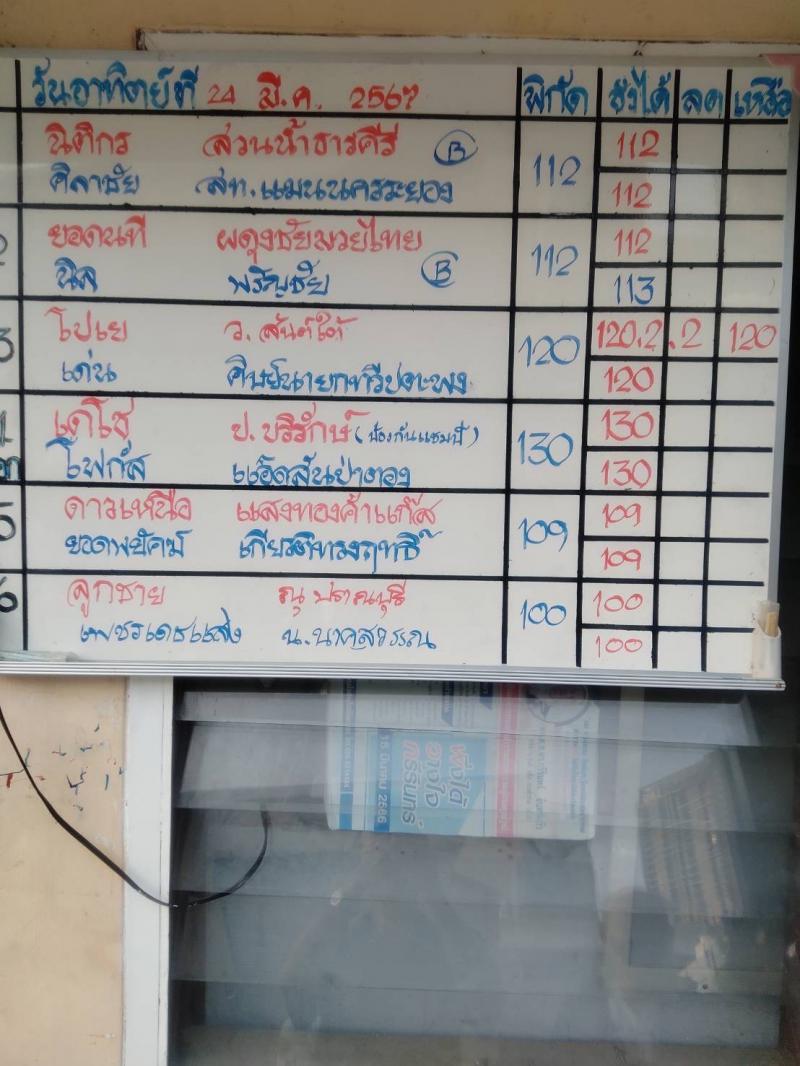 วันอาทิตย์ที่ 24 มี.ค. 2567 พิกัด ชั่งได้ ลด เหลือ
นิติกร ส่วนน้ำธารคีรี B 112 112
ศิลาชัย ส.ท.แมนนครระยอง 112
2 ยอดนที ผดุงชัยมวยไทย 112 112
นิล พรัญชัย B 113
3 โปเย ว.สันต์ใต้ 120 120.2 .2 120
เด่น ศิษย์นายกทวีปตะพง 120
เดโช ป.บริรักษ์ (ป้องกันแชมป์) 130 130
โฟกัส แอ๊ดสันป่าตอง 130
5 ดาวเหนือ แสงทองค้าแก๊ส 109 109
ยอดพยัคฆ์ เกียรติทรงฤทธิ์ 109
6 ลูกชาย 100 100
เพชรเดชแสง น.นาคสุวรรณ 100
15 มีนาคม 2566